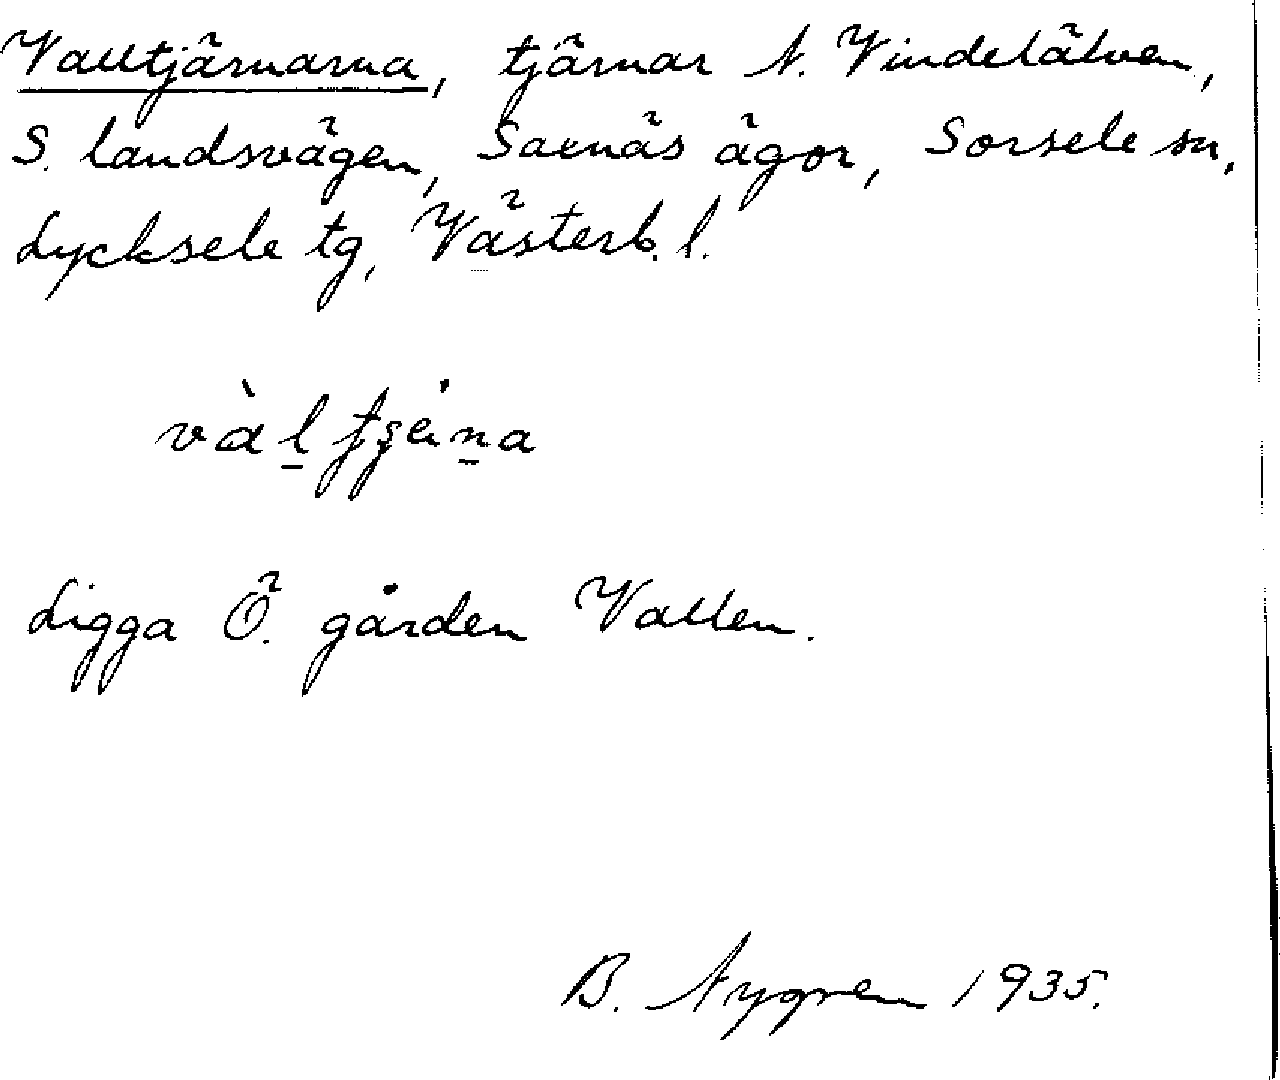 Valltjärnarna, tjärnar N. Vindelälven,
S. landsvägen, Saxnäs ägor, Sorsele sn,
Lycksele tg, Västerb. l.
Ligga Ö. gården Vallen.
B. Nygren 1935.